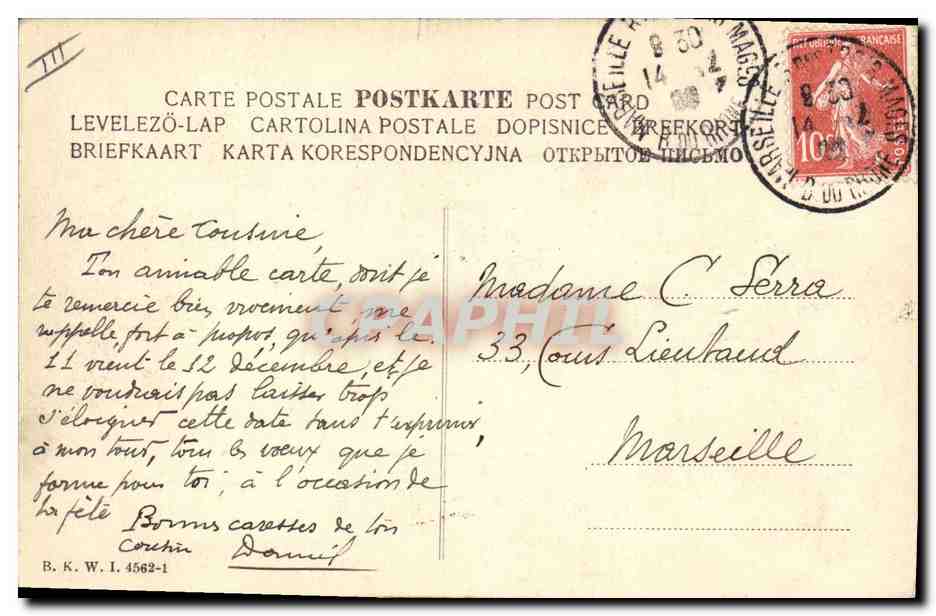 III
CARTE POSTALE POSTKARTE POST CARD
LEVELEZÖ-LAP CARTOLINA POSTALE DOPISNICE BREFKORT
BRIEFKAART KARTA KORESPONDENCYJNA ОТКРЫТОЕ ПИСЬМО
MARSEILLE
8 30
14
B. DU RHONE
REPUBLIQUE FRANÇAISE
10
POSTES
MARSEILLE
8 30
14
B. DU RHONE
Ma chère Cousine,
Ton aimable carte, dont je
te remercie bien vivement, me
rappelle fort à propos, qu'après le
11 vient le 12 décembre, et je
ne voudrais pas laisser trop
s'éloigner cette date sans t'exprimer,
à mon tour, tous les vœux que je
forme pour toi, à l'occasion de
ta fête
Bonnes caresses de ton
cousin Daniel
Madame C. Serra
33, Cours Lieutaud
Marseille
CPAPHIL
B. K. W. I. 4562-1